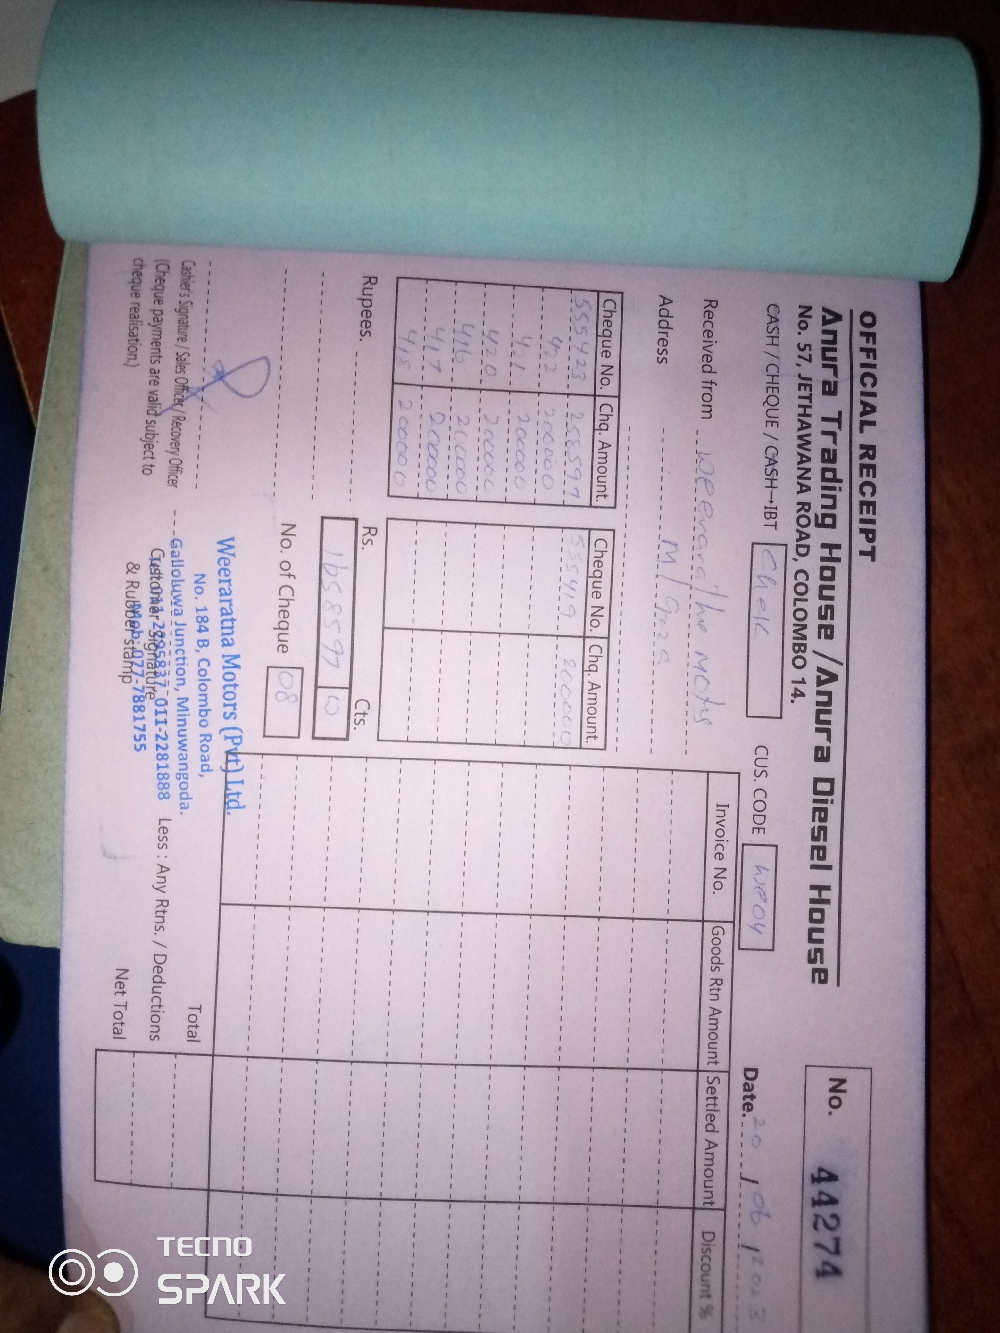 OFFICIAL RECEIPT
Anura Trading House / Anura Diesel House
No. 57, JETHAWANA ROAD, COLOMBO 14.
No. 44274
CASH / CHEQUE / CASH→IBT Chek CUS. CODE we04 Date. 20 / 06 / 2023
Received from
Address
Cheque No. Chq. Amount Cheque No. Chq. Amount
555423 258597 555419 200000
422 200000
421 200000
420 200000
416 200000
417 200000
415 200000
Invoice No. Goods Rtn Amount Settled Amount Discount %
Rupees. Rs. Cts.
1658597
No. of Cheque 08
Weeraratna Motors (Pvt) Ltd.
No. 184 B, Colombo Road,
Galloluwa Junction, Minuwangoda.
011-2281888
Mob: 077-7881755
Cashier's Signature / Sales Officer / Recovery Officer
(Cheque payments are valid subject to
cheque realisation.)
Customer Signature
& Rubber stamp
Total
Less : Any Rtns. / Deductions
Net Total
TECNO
SPARK